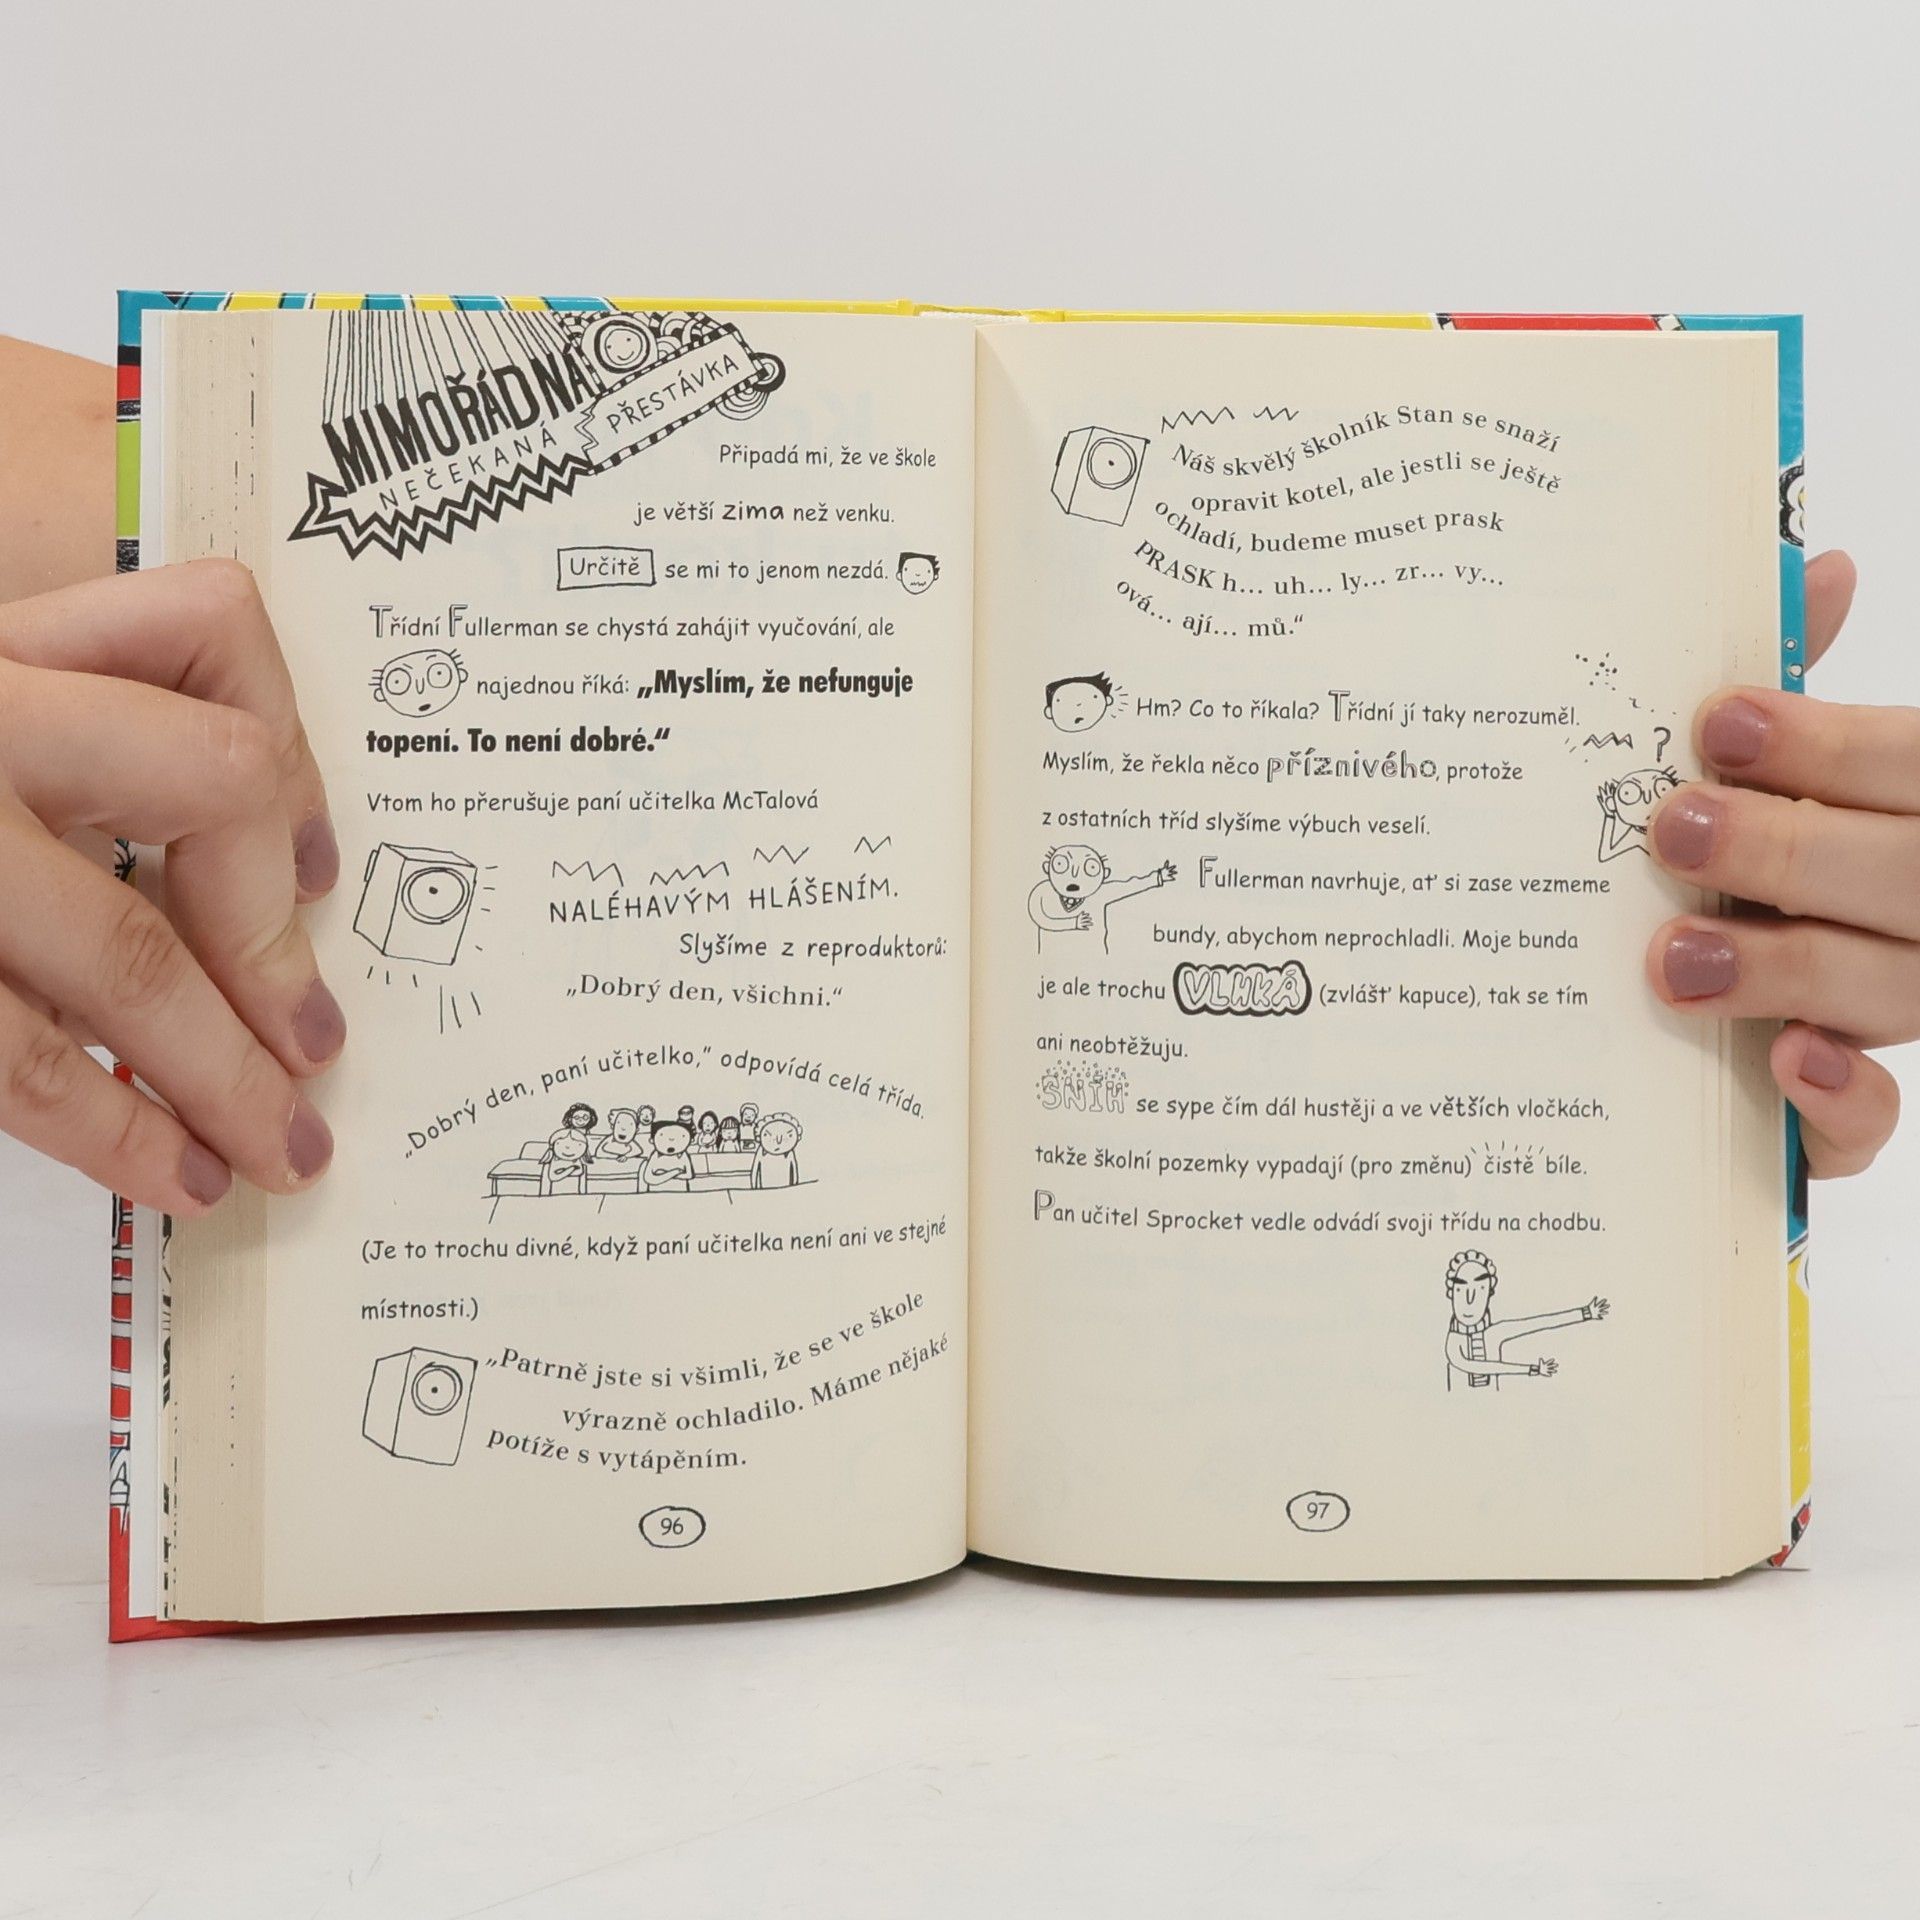 MIMOŘÁDNÁ
NEČEKANÁ
PŘESTÁVKA
Připadá mi, že ve škole
je větší zima než venku.
Určitě se mi to jenom nezdá.
Třídní Fullerman se chystá zahájit vyučování, ale
najednou říká: „Myslím, že nefunguje
topení. To není dobré.“
Vtom ho přerušuje paní učitelka McTalová
NALÉHAVÝM HLÁŠENÍM.
Slyšíme z reproduktorů:
„Dobrý den, všichni.“
„Dobrý den, paní učitelko,“ odpovídá celá třída.
(Je to trochu divné, když paní učitelka není ani ve stejné
místnosti.)
„Patrně jste si všimli, že se ve škole
výrazně ochladilo. Máme nějaké
potíže s vytápěním.
96
Náš skvělý školník Stan se snaží
opravit kotel, ale jestli se ještě
ochladí, budeme muset prask
PRASK h... uh... ly... zr... vy...
ová... ají... mů.“
Hm? Co to říkala? Třídní jí taky nerozuměl.
?
Myslím, že řekla něco příznivého, protože
z ostatních tříd slyšíme výbuch veselí.
Fullerman navrhuje, ať si zase vezmeme
bundy, abychom neprochladli. Moje bunda
je ale trochu VLHKÁ (zvlášť kapuce), tak se tím
ani neobtěžuju.
SNÍH se sype čím dál hustěji a ve větších vločkách,
takže školní pozemky vypadají (pro změnu) čistě bíle.
Pan učitel Sprocket vedle odvádí svoji třídu na chodbu.
97